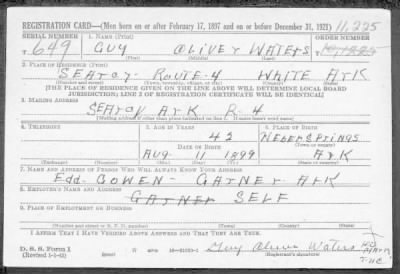 REGISTRATION CARD—(Men born on or after February 17, 1897 and on or before December 31, 1921) 11,225
SERIAL NUMBER 1. NAME (Print) ORDER NUMBER
T 649 GUY OLIVER WATERS
(First) (Middle) (Last)
2. PLACE OF RESIDENCE (Print)
SEARCY- ROUTE-4 WHITE ARK
(Number and street) (Town, township, village, or city) (County) (State)
[THE PLACE OF RESIDENCE GIVEN ON THE LINE ABOVE WILL DETERMINE LOCAL BOARD
JURISDICTION; LINE 2 OF REGISTRATION CERTIFICATE WILL BE IDENTICAL]
3. MAILING ADDRESS
SEARCY ARK R-4
[Mailing address if other than place indicated on line 2. If same insert word same]
4. TELEPHONE 5. AGE IN YEARS 6. PLACE OF BIRTH
42 HEBER SPRINGS
DATE OF BIRTH (Town or county)
AUG- 11 1899 ARK
(Exchange) (Number) (Mo.) (Day) (Yr.) (State or country)
7. NAME AND ADDRESS OF PERSON WHO WILL ALWAYS KNOW YOUR ADDRESS
Edd. GOWEN- GARNER ARK
8. EMPLOYER'S NAME AND ADDRESS
GARNER SELF
9. PLACE OF EMPLOYMENT OR BUSINESS
(Number and street or R. F. D. number) (Town) (County) (State)
I AFFIRM THAT I HAVE VERIFIED ABOVE ANSWERS AND THAT THEY ARE TRUE.
D. S. S. Form 1
(Revised 1-1-42) Guy Oliver Waters
(Registrant's signature)